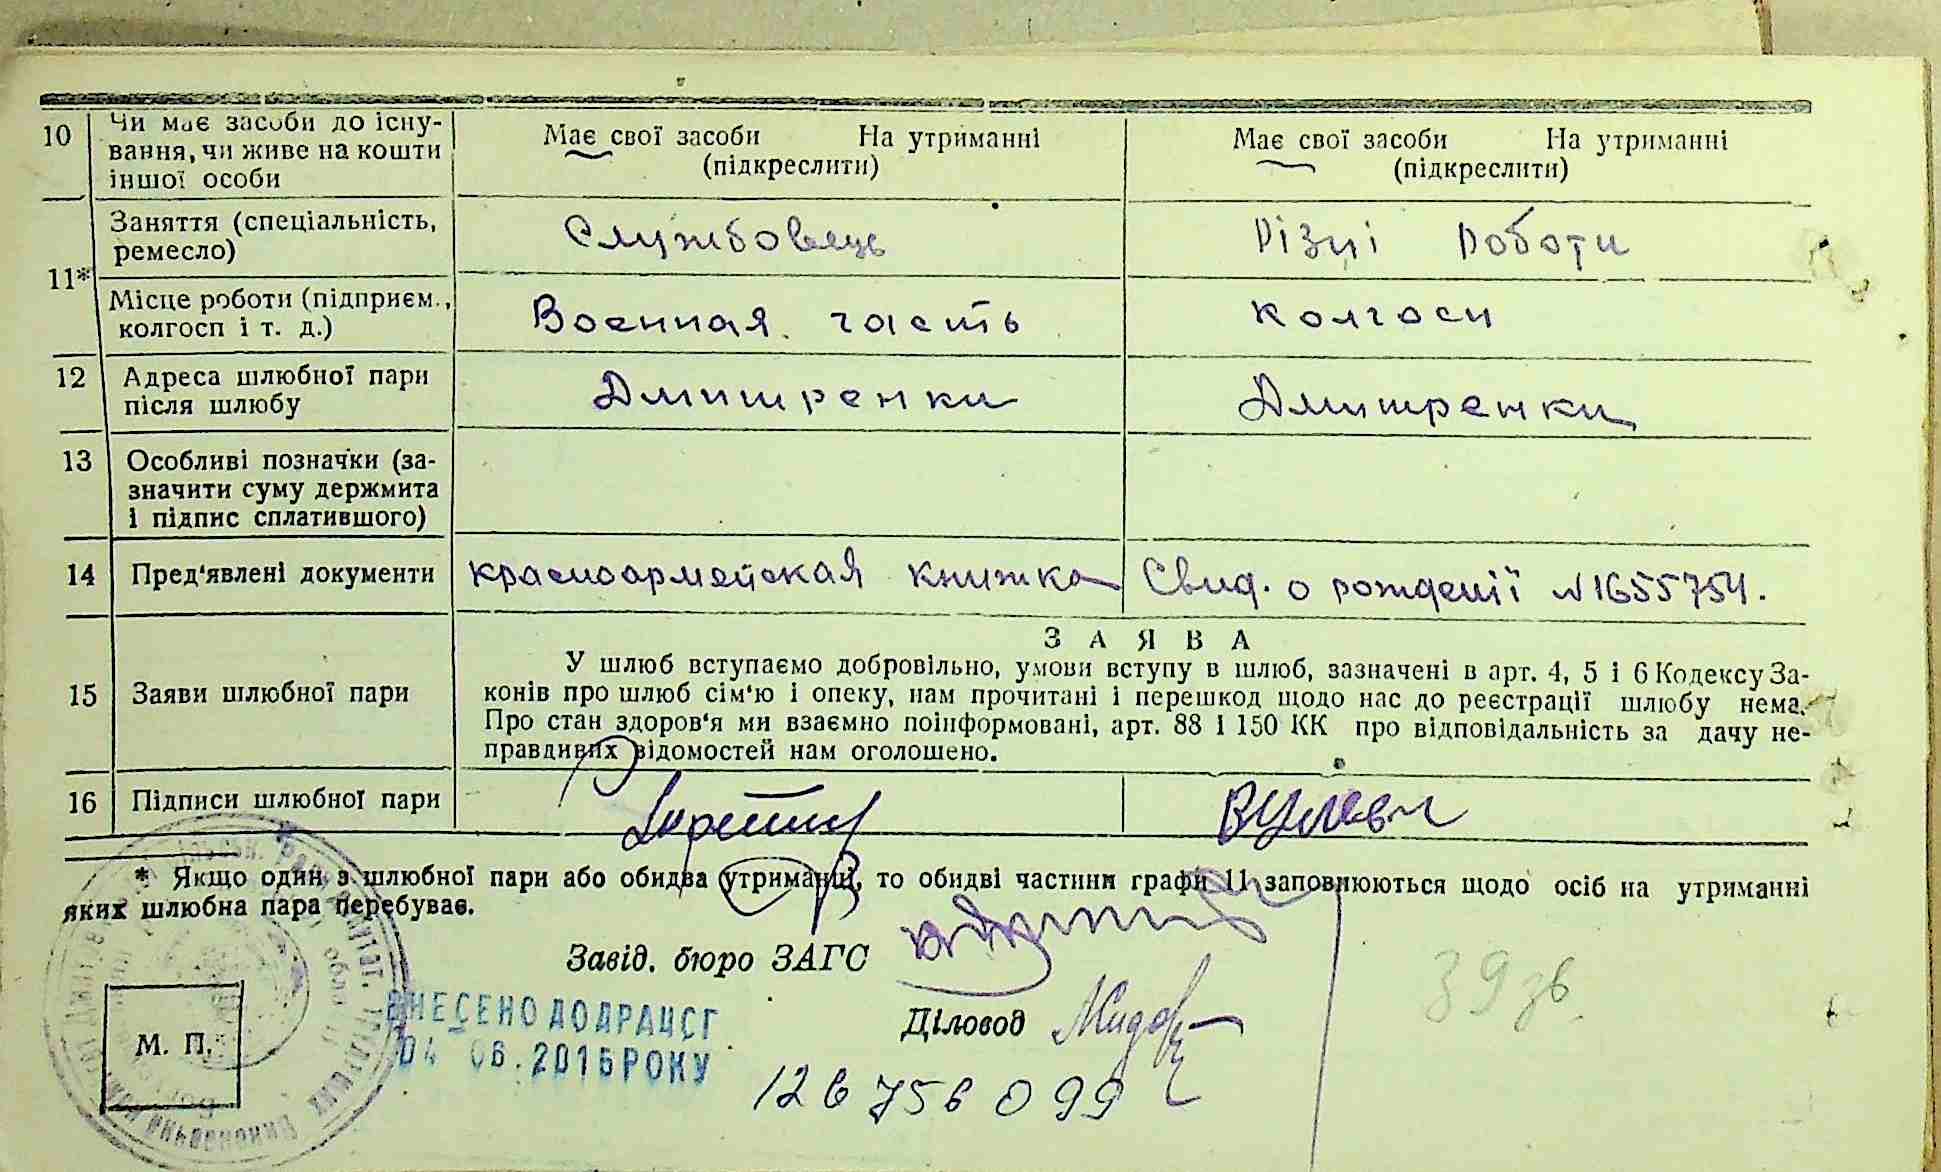 10 Чи має засоби до існу-
вання, чи живе на кошти
іншої особи
Має свої засоби На утриманні
(підкреслити)
Має свої засоби На утриманні
(підкреслити)
11*
Заняття (спеціальність,
ремесло)
Службовець
Різні роботи
Місце роботи (підприєм.,
колгосп і т. д.)
Военная часть
колгосп
12 Адреса шлюбної пари
після шлюбу
Дмитренки
Дмитренки
13 Особливі позначки (за-
значити суму держмита
і підпис сплатившого)
14 Пред'явлені документи
красноармейская книжка
Свид. о рожденії №1655754.
15 Заяви шлюбної пари
ЗАЯВА
У шлюб вступаємо добровільно, умови вступу в шлюб, зазначені в арт. 4, 5 і 6 Кодексу За-
конів про шлюб сім'ю і опеку, нам прочитані і перешкод щодо нас до реєстрації шлюбу нема.
Про стан здоров'я ми взаємно поінформовані, арт. 88 і 150 КК про відповідальність за дачу не-
правдивих відомостей нам оголошено.
16 Підписи шлюбної пари
* Якщо один з шлюбної пари або обидва утриманці, то обидві частини графи 11 заповнюються щодо осіб на утриманні
яких шлюбна пара перебуває.
Завід. бюро ЗАГС
ВНЕСЕНО ДО ДРАЦСГ
04 06. 2016 РОКУ
Діловод
М. П.
39 зв.
126756099